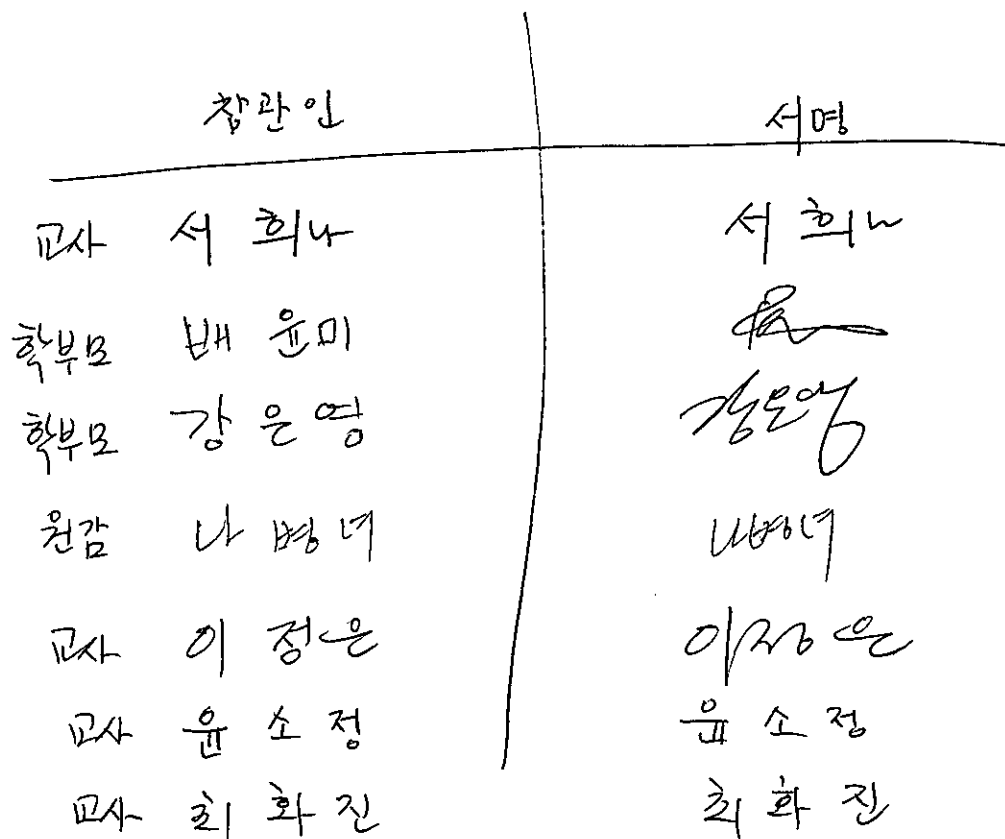 참관인 서명
교사 서희나 서희나
학부모 배윤미
학부모 강은영 강은영
원감 나병녀 나병녀
교사 이정은 이정은
교사 윤소정 윤소정
교사 최화진 최화진